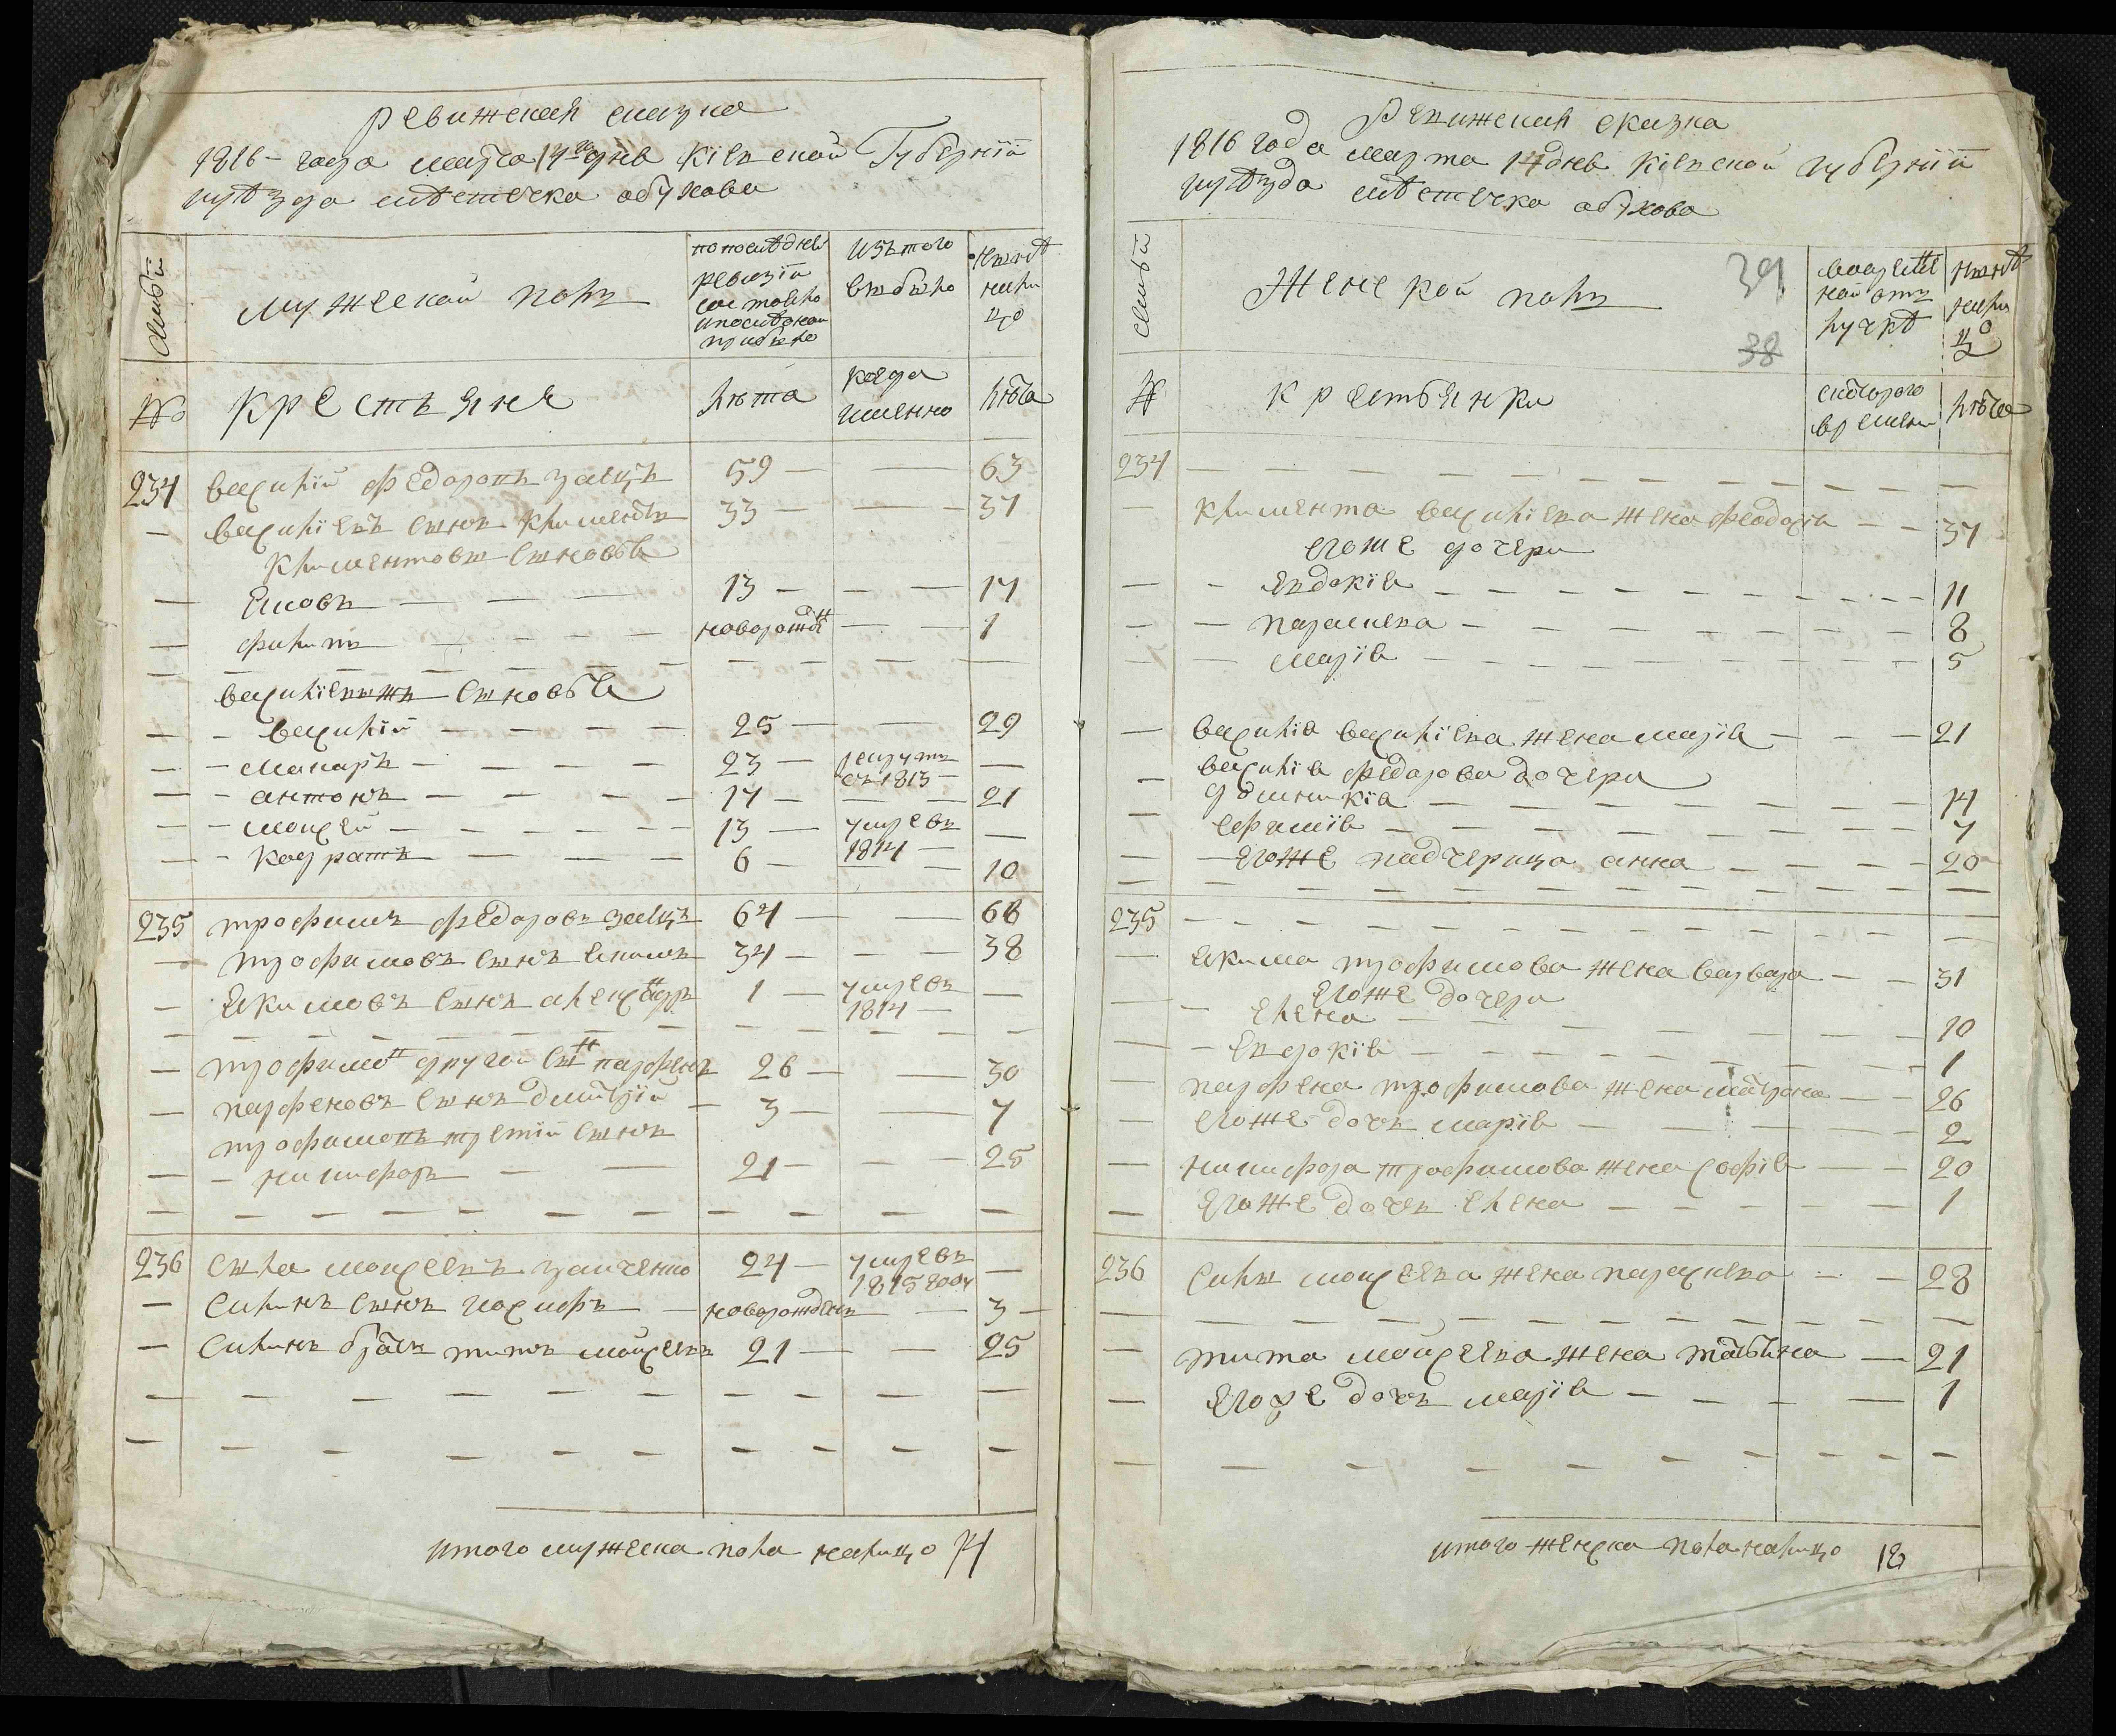 ревижская сказка
1816 – года марта 14 дня кіевской Губерніи
и уѣзда мѣстечка обухова
семьи
мужеской полъ
по последней
ревизіи
состояло
и после оной
прибыло
изъ того
выбыло
нынѣ
нали
цо
№
крестьяне
лѣта
когда
именно
лѣта
234 василій федоровъ заецъ 59 — — 63
— василіевъ сынъ климентъ 33 — — 37
климентовы сыновья
— яковъ — — — 13 — — — 17
— филипъ — — — новорожден — — 1
василіевыжъ сыновья
— – василій — — — — 25 — — 29
— – макаръ — — — — 23 — рекрутъ съ 1813 —
— – антонъ — — — — 17 — — — 21
— – моисей — — — — 13 — умревъ 1814 —
— – кодратъ — — — 6 — — — 10
235 трофимъ федоровъ заецъ 64 — — 68
— трофимовъ сынъ екимъ 34 — — — 38
— якимовъ сынъ александръ 1 — умревъ 1814 —
— трофимо другой сын парфенъ 26 — — 30
— парфеновъ сынъ дмитрій — 3 — — 7
трофимовъ третій сынъ
— – никифоръ — — 21 — — — 25
236 сила моисеевъ заиченко 24 — умревъ 1815 году —
— силинъ сынъ иосифъ — новорожденъ — 3 —
— силинъ братъ титъ моисеевъ 21 — — 25
итого мужеска пола налицо 14
Ревижская сказка
1816 года марта 14 дня кіевской губерніи
и уѣзда мѣстечка обухова
семьи
Женской полъ
39
38
во времен
ной отъ
лучкѣ
нынѣ
нали
цо
№
крестьянки
съ которого
времени
лѣта
234 — — — —
— климента василіева жена феодосія — — 37
егоже дочери
— – евдокія — — — — 11
— – параскева — — — — 8
— – марія — — — — 5
— василія василіева жена марія — — — 21
— василія федорова дочери
домникія — — — — 14
— ефимія — — — — 7
— – егоже падчерица анна — — — 20
235 — — — —
— якима трофимова жена варвара — 31
егоже дочери
— – елена — — — — 10
— – евдокія — — — — 1
— парфена трофимова жена матрона — — 26
— егоже дочъ марія — — — 2
— никифора трофимова жена софія — — 20
— егоже дочъ елена — — — — 1
236 силы моисеева жена параскева — — 28
— тита моисеева жена татьяна — 21
— егоже дочъ марія — — — — 1
итого женска пола налицо 18